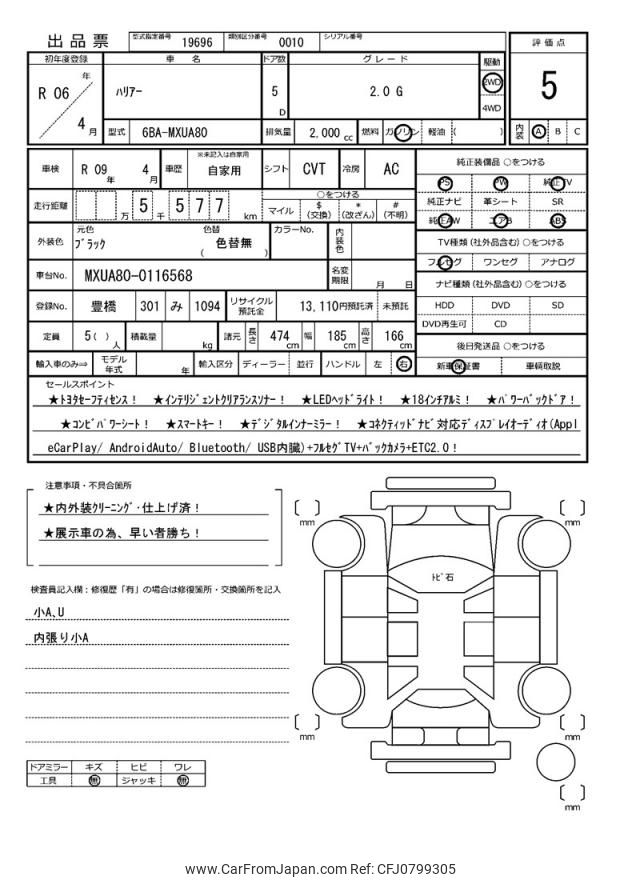 出品票 型式指定番号 19696 類別区分番号 0010 シリアル番号
評価点
5
内装 A B C
初年度登録 車名 ドア数 グレード 駆動
R 06 年 4 月
ハリアー
5 D
2.0 G
2WD
4WD
型式 6BA-MXUA80 排気量 2,000 cc 燃料 ガソリン 軽油 ( )
車検 R 09 年 4 月 車歴 ※未記入は自家用 自家用 シフト CVT 冷房 AC
走行距離 万 5 千 5 7 7 km
○をつける
マイル $ (交換) * (改ざん) # (不明)
外装色 元色 ブラック 色替 ( 色替無 ) カラーNo. 内装色
車台No. MXUA80-0116568 名変期限 月 日
登録No. 豊橋 301 み 1094 リサイクル預託金 13,110円預託済 未預託
定員 5( ) 人 積載量 kg 諸元 長さ 474 cm 幅 185 cm 高さ 166 cm
輸入車のみ⇒ モデル年式 年 輸入区分 ディーラー 並行 ハンドル 左 右
純正装備品 ○をつける
PS PW 純正TV
純正ナビ 革シート SR
純正AW エアB ABS
TV種類(社外品含む)○をつける
フルセグ ワンセグ アナログ
ナビ種類(社外品含む)○をつける
HDD DVD SD
DVD再生可 CD
後日発送品 ○をつける
新車保証書 車輌取説
セールスポイント
★トヨタセーフティセンス! ★インテリジェントクリアランスソナー! ★LEDヘッドライト! ★18インチアルミ! ★パワーバックドア!
★コンビパワーシート! ★スマートキー! ★デジタルインナーミラー! ★コネクティッドナビ対応ディスプレイオーディオ(Appl
eCarPlay/ AndroidAuto/ Bluetooth/ USB内臓)+フルセグTV+バックカメラ+ETC2.0!
注意事項・不具合箇所
★内外装クリーニング・仕上げ済!
★展示車の為、早い者勝ち!
検査員記入欄:修復歴「有」の場合は修復箇所・交換箇所を記入
小A、U
内張り小A
ドアミラー キズ ヒビ ワレ
工具 無 ジャッキ 無
[ ] mm
[ ] mm
トビ石
[ ] mm
[ ] mm
[ ] mm
www.CarFromJapan.com Ref: CFJ0799305